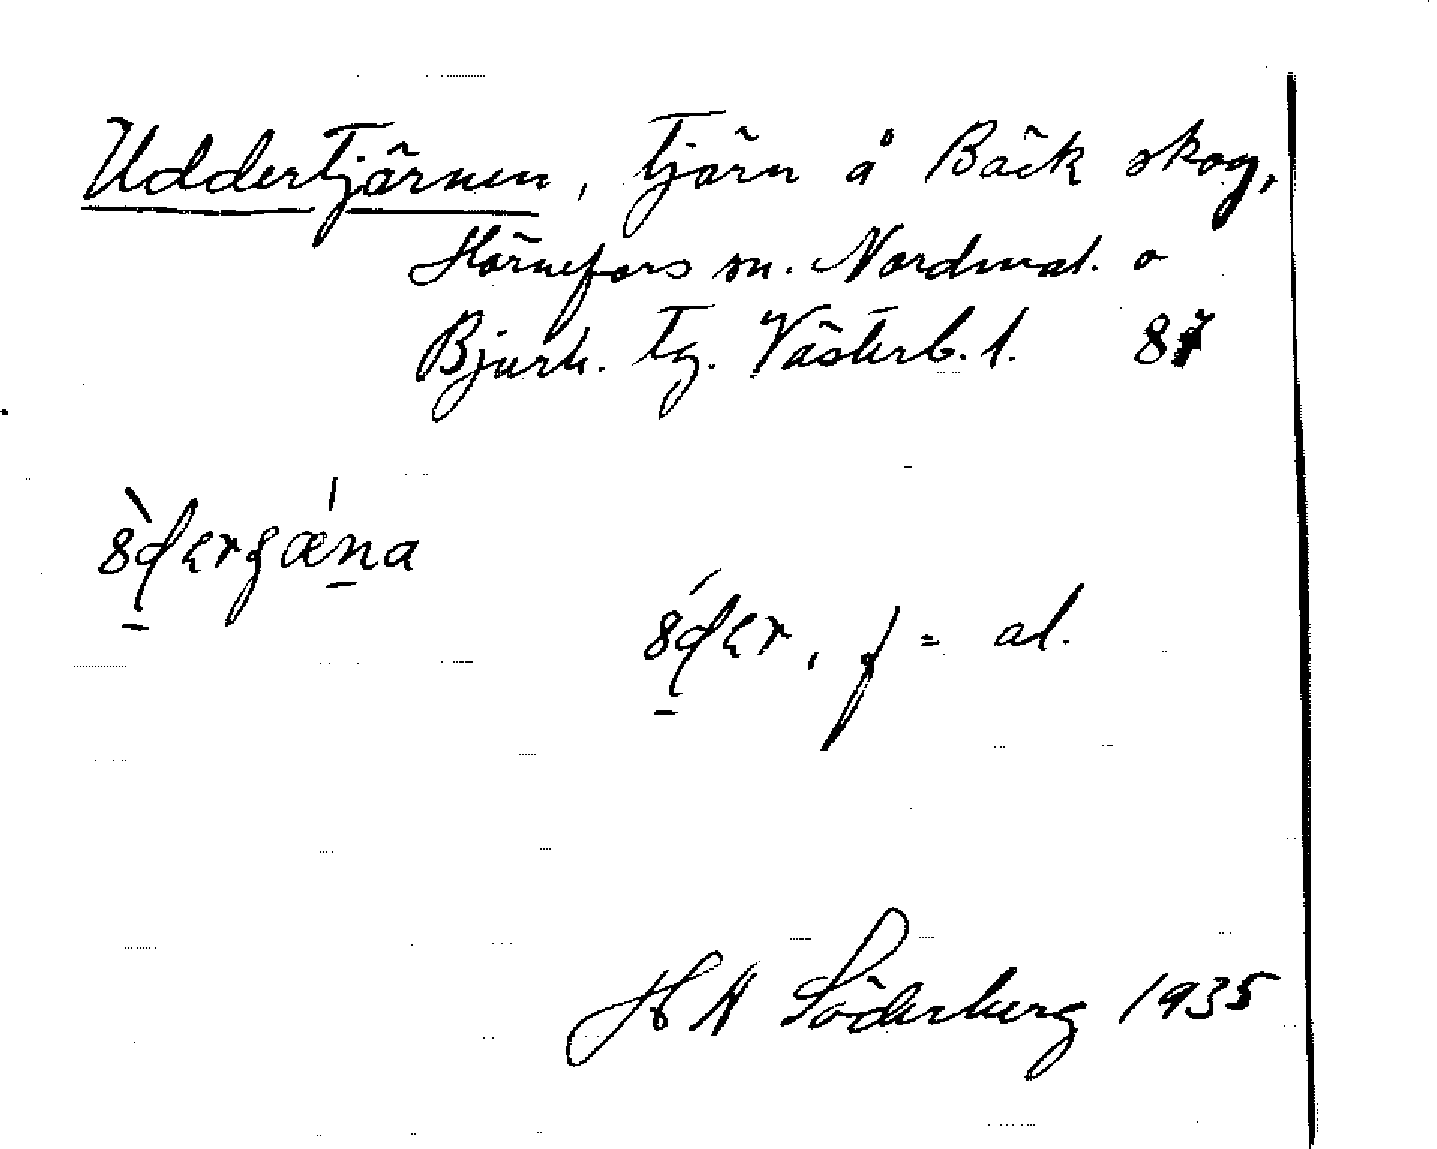 Uddertjärnen, tjärn å Bäck skog,
Hörnefors sn. Nordmal. o
Bjurh. tg. Västerb. l. 87
f = al.
H N Söderberg 1935